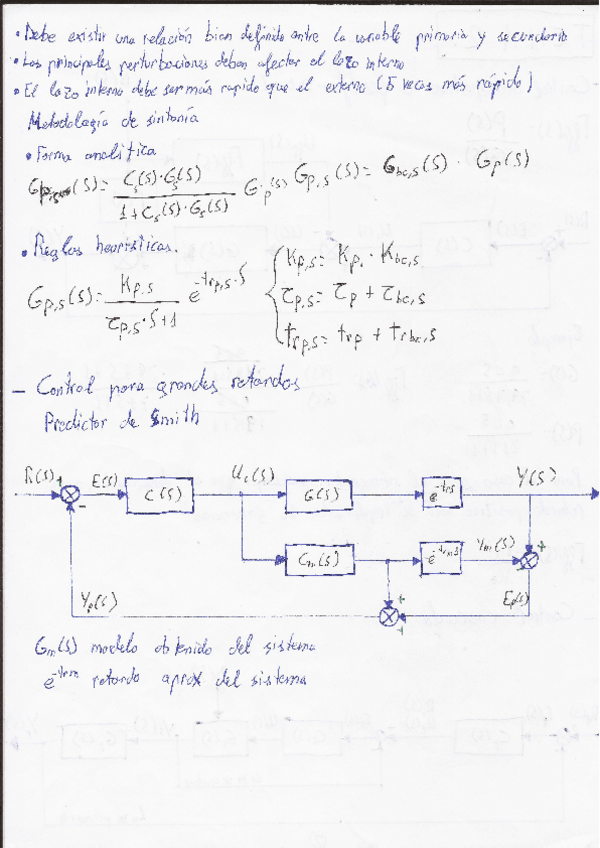 • Debe existir una relación bien definido entre la variable primaria y secundaria
• Las principales perturbaciones deben afectar al lazo interno
• El lazo interno debe ser más rapido que el externo (5 veces más rápido)
Metodología de sintonía
• Forma analítica
Gp,s(s) = Cs(s)·Gs(s) / 1+Cs(s)·Gs(s) Gp(s) Gp,s(s) = Gbc,s(s) · Gp(s)
• Reglas heurísticas.
Gp,s(s) = Kp,s / τp,s·s+1 e^-trp,s·s
Kp,s = Kp · Kbc,s
τp,s = τp + τbc,s
trp,s = trp + trbc,s
– Control para grandes retardos
Predictor de Smith
R(s) + - E(s) C(s) Uc(s) G(s) e^-trs Y(s)
Gm(s) e^-trms Ym(s) + -
Yp(s) + + Ep(s)
Gm(s) modelo obtenido del sistema
e^-trm retardo aprox del sistema